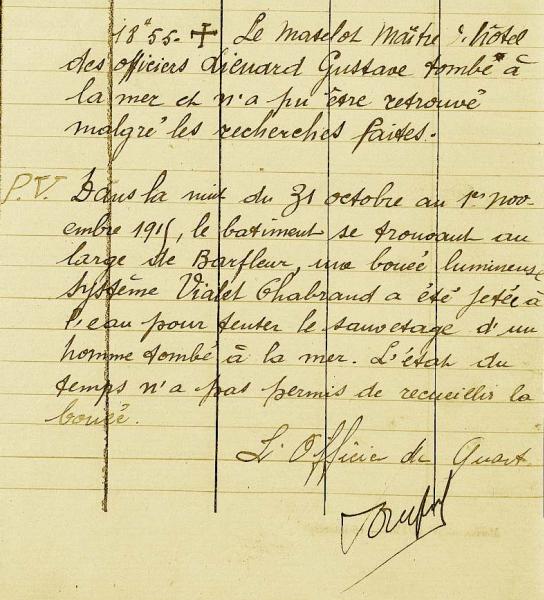 18h55. ✝ Le Matelot Maître d'hôtel
des officiers Liénard Gustave tombé à
la mer et n'a pu être retrouvé
malgré les recherches faites.
P.V. Dans la nuit du 31 octobre au 1er nov-
embre 1915, le batiment se trouvant au
large de Barfleur, une bouée lumineuse
système Vialet Chabrand a été jetée à
l'eau pour tenter le sauvetage d'un
homme tombé à la mer. L'état du
temps n'a pas permis de recueillir la
bouée.
L'Officier de Quart